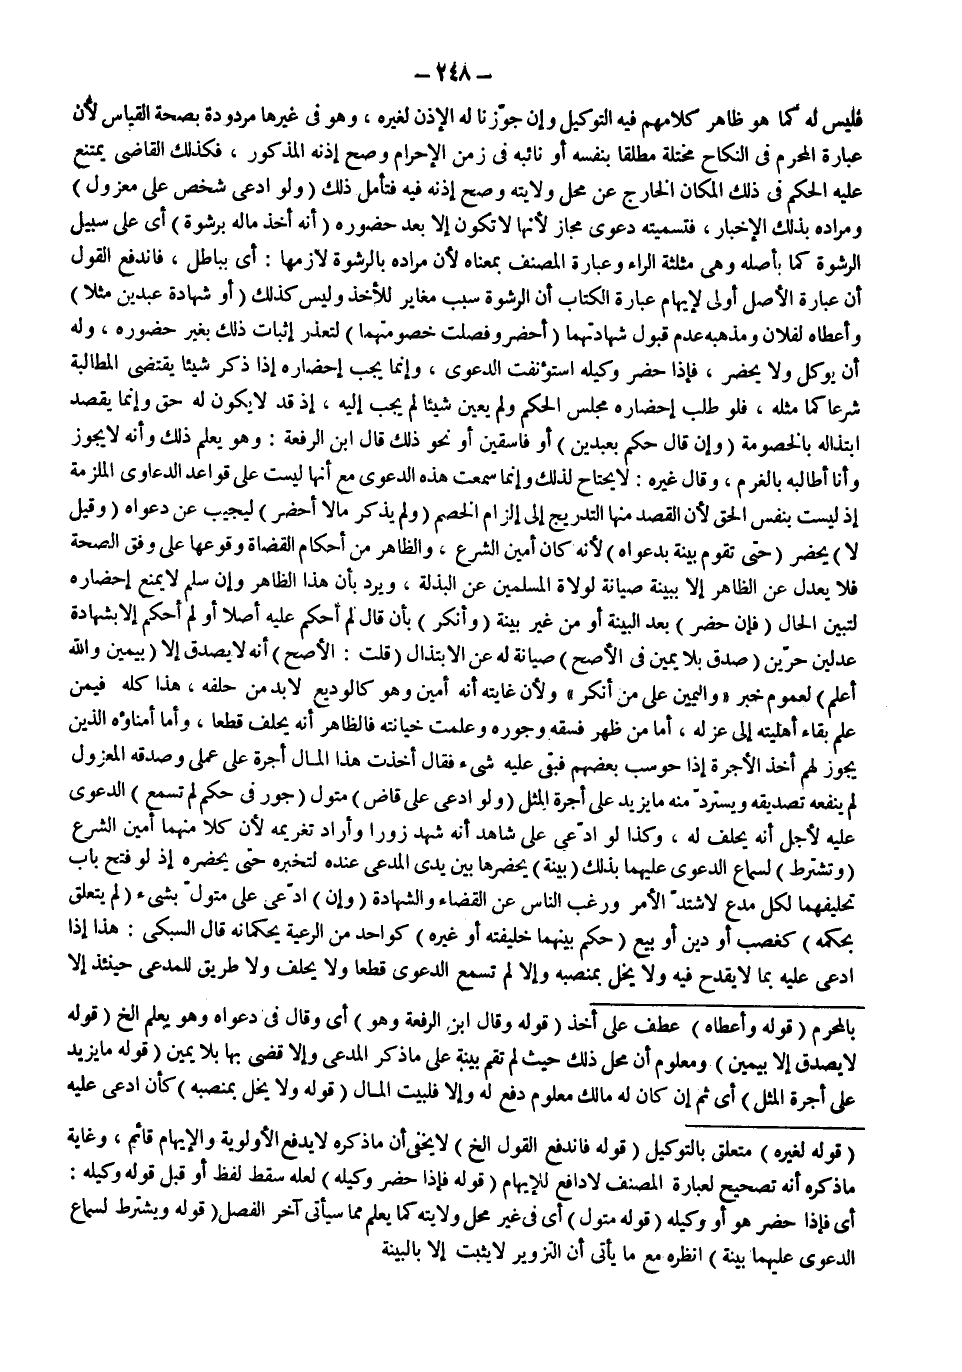 – ٢٤٨ –
فليس له كما هو ظاهر كلامهم فيه التوكيل وإن جوّزنا له الإذن لغيره ، وهو فى غيرها مردودة بصحة القياس لأن
عبارة المحرم فى النكاح مختلة مطلقا بنفسه أو نائبه فى زمن الإحرام وصح إذنه المذكور ، فكذلك القاضى يمتنع
عليه الحكم فى ذلك المكان الخارج عن محل ولايته وصح إذنه فيه فتأمل ذلك ( ولو ادعى شخص على معزول )
ومراده بذلك الإخبار ، فتسميته دعوى مجاز لأنها لا تكون إلا بعد حضوره ( أنه أخذ ماله برشوة ) أى على سبيل
الرشوة كما بأصله وهى مثلثة الراء وعبارة المصنف بمعناه لأن مراده بالرشوة لازمها : أى بباطل ، فاندفع القول
أن عبارة الأصل أولى لإيهام عبارة الكتاب أن الرشوة سبب مغاير للأخذ وليس كذلك ( أو شهادة عبدين مثلا )
وأعطاه لفلان ومذهبه عدم قبول شهادتهما ( أحضر وفصلت خصومتهما ) لتعذر إثبات ذلك بغير حضوره ، وله
أن يوكل ولا يحضر ، فإذا حضر وكيله استؤنفت الدعوى ، وإنما يجب إحضاره إذا ذكر شيئا يقتضى المطالبة
شرعا كما مثله ، فلو طلب إحضاره مجلس الحكم ولم يعين شيئا لم يجب إليه ، إذ قد لا يكون له حق وإنما يقصد
ابتذاله بالخصومة ( وإن قال حكم بعبدين ) أو فاسقين أو نحو ذلك قال ابن الرفعة : وهو يعلم ذلك وأنه لا يجوز
وأنا أطالبه بالغرم ، وقال غيره : لا يحتاج لذلك وإنما سمعت هذه الدعوى مع أنها ليست على قواعد الدعاوى الملزمة
إذ ليست بنفس الحق لأن القصد منها التدريج إلى إلزام الخصم ( ولم يذكر مالا أحضر ) ليجيب عن دعواه ( وقيل
لا ) يحضر ( حتى تقوم بينة بدعواه ) لأنه كان أمين الشرع ، والظاهر من أحكام القضاة وقوعها على وفق الصحة
فلا يعدل عن الظاهر إلا ببينة صيانة لولاة المسلمين عن البذلة ، ويرد بأن هذا الظاهر وإن سلم لا يمنع إحضاره
لتبين الحال ( فإن حضر ) بعد البينة أو من غير بينة ( وأنكر ) بأن قال لم أحكم عليه أصلا أو لم أحكم إلا بشهادة
عدلين حرّين ( صدق بلا يمين فى الأصح ) صيانة له عن الابتذال ( قلت : الأصح ) أنه لا يصدق إلا ( بيمين والله
أعلم ) لعموم خبر « واليمين على من أنكر » ولأن غايته أنه أمين وهو كالوديع لا بد من حلفه ، هذا كله فيمن
علم بقاء أهليته إلى عزله ، أما من ظهر فسقه وجوره وعلمت خيانته فالظاهر أنه يحلف قطعا ، وأما أمناؤه الذين
يجوز لهم أخذ الأجرة إذا حوسب بعضهم فبقى عليه شىء فقال أخذت هذا المال أجرة على عملى وصدقه المعزول
لم ينفعه تصديقه ويستردّ منه ما يزيد على أجرة المثل ( ولو ادعى على قاض ) متول ( جور فى حكم لم تسمع ) الدعوى
عليه لأجل أنه يحلف له ، وكذا لو ادّعى على شاهد أنه شهد زورا وأراد تغريمه لأن كلا منهما أمين الشرع
( وتشترط ) لسماع الدعوى عليهما بذلك ( بينة ) يحضرها بين يدى المدعى عنده لتخبره حتى يحضره إذ لو فتح باب
تحليفهما لكل مدع لاشتدّ الأمر ورغب الناس عن القضاء والشهادة ( وإن ) ادّعى على متولّ بشىء ( لم يتعلق
بحكمه ) كغصب أو دين أو بيع ( حكم بينهما خليفته أو غيره ) كواحد من الرعية يحكمانه قال السبكى : هذا إذا
ادعى عليه بما لا يقدح فيه ولا يخل بمنصبه وإلا لم تسمع الدعوى قطعا ولا يحلف ولا طريق للمدعى حينئذ إلا
بالمحرم ( قوله وأعطاه ) عطف على أخذ ( قوله وقال ابن الرفعة وهو ) أى وقال فى دعواه وهو يعلم الخ ( قوله
لا يصدق إلا بيمين ) ومعلوم أن محل ذلك حيث لم تقم بينة على ما ذكر المدعى وإلا قضى بها بلا يمين ( قوله ما يزيد
على أجرة المثل ) أى ثم إن كان له مالك معلوم دفع له وإلا فلبيت المال ( قوله ولا يخل بمنصبه ) كأن ادعى عليه
( قوله لغيره ) متعلق بالتوكيل ( قوله فاندفع القول الخ ) لا يخفى أن ما ذكره لا يدفع الأولوية والإيهام قائم ، وغاية
ما ذكره أنه تصحيح لعبارة المصنف لا دافع للإيهام ( قوله فإذا حضر وكيله ) لعله سقط لفظ أو قبل قوله وكيله :
أى فإذا حضر هو أو وكيله ( قوله متول ) أى فى غير محل ولايته كما يعلم مما سيأتى آخر الفصل ( قوله ويشترط لسماع
الدعوى عليهما بينة ) انظره مع ما يأتى أن التزوير لا يثبت إلا بالبينة